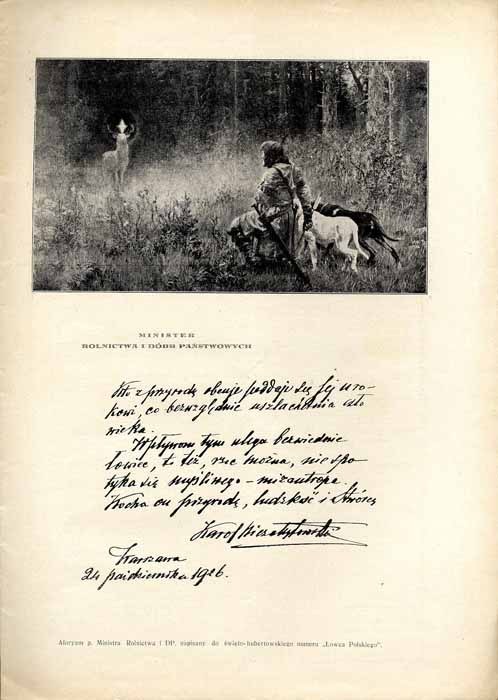 MINISTER
ROLNICTWA I DÓBR PAŃSTWOWYCH
Kto z przyrodą obcuje poddaje się jej uro-
kowi, co bezwzględnie uszlachetnia czło
wieka.
Wpływom tym ulega bezwiednie
łowiec, to też, rzec można, nie spo-
tyka się myśliwego - mizantropa.
Kocha on przyrodę, ludzkość i Stwórcę
Karol Niezabytowski
Warszawa
24 października 1926.
Aforyzm p. Ministra Rolnictwa i DP. napisany do święto-hubertowskiego numeru „Łowca Polskiego".